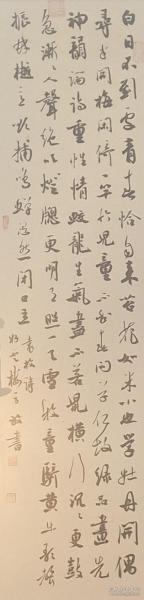 白日不到處青春恰自來苔花如米小也學牡丹開偶
尋半開梅閑倚一竿竹兒童不知春問草何故綠品畫先
神韻論詩重性情蛟龍生氣盡不若鼠橫行沉沉更鼓
急漸漸人聲絕吹燈窗更明月照一天雪牧童騎黃牛歌聲
振林樾意欲捕鳴蟬忽然閉口立 袁枚詩
書